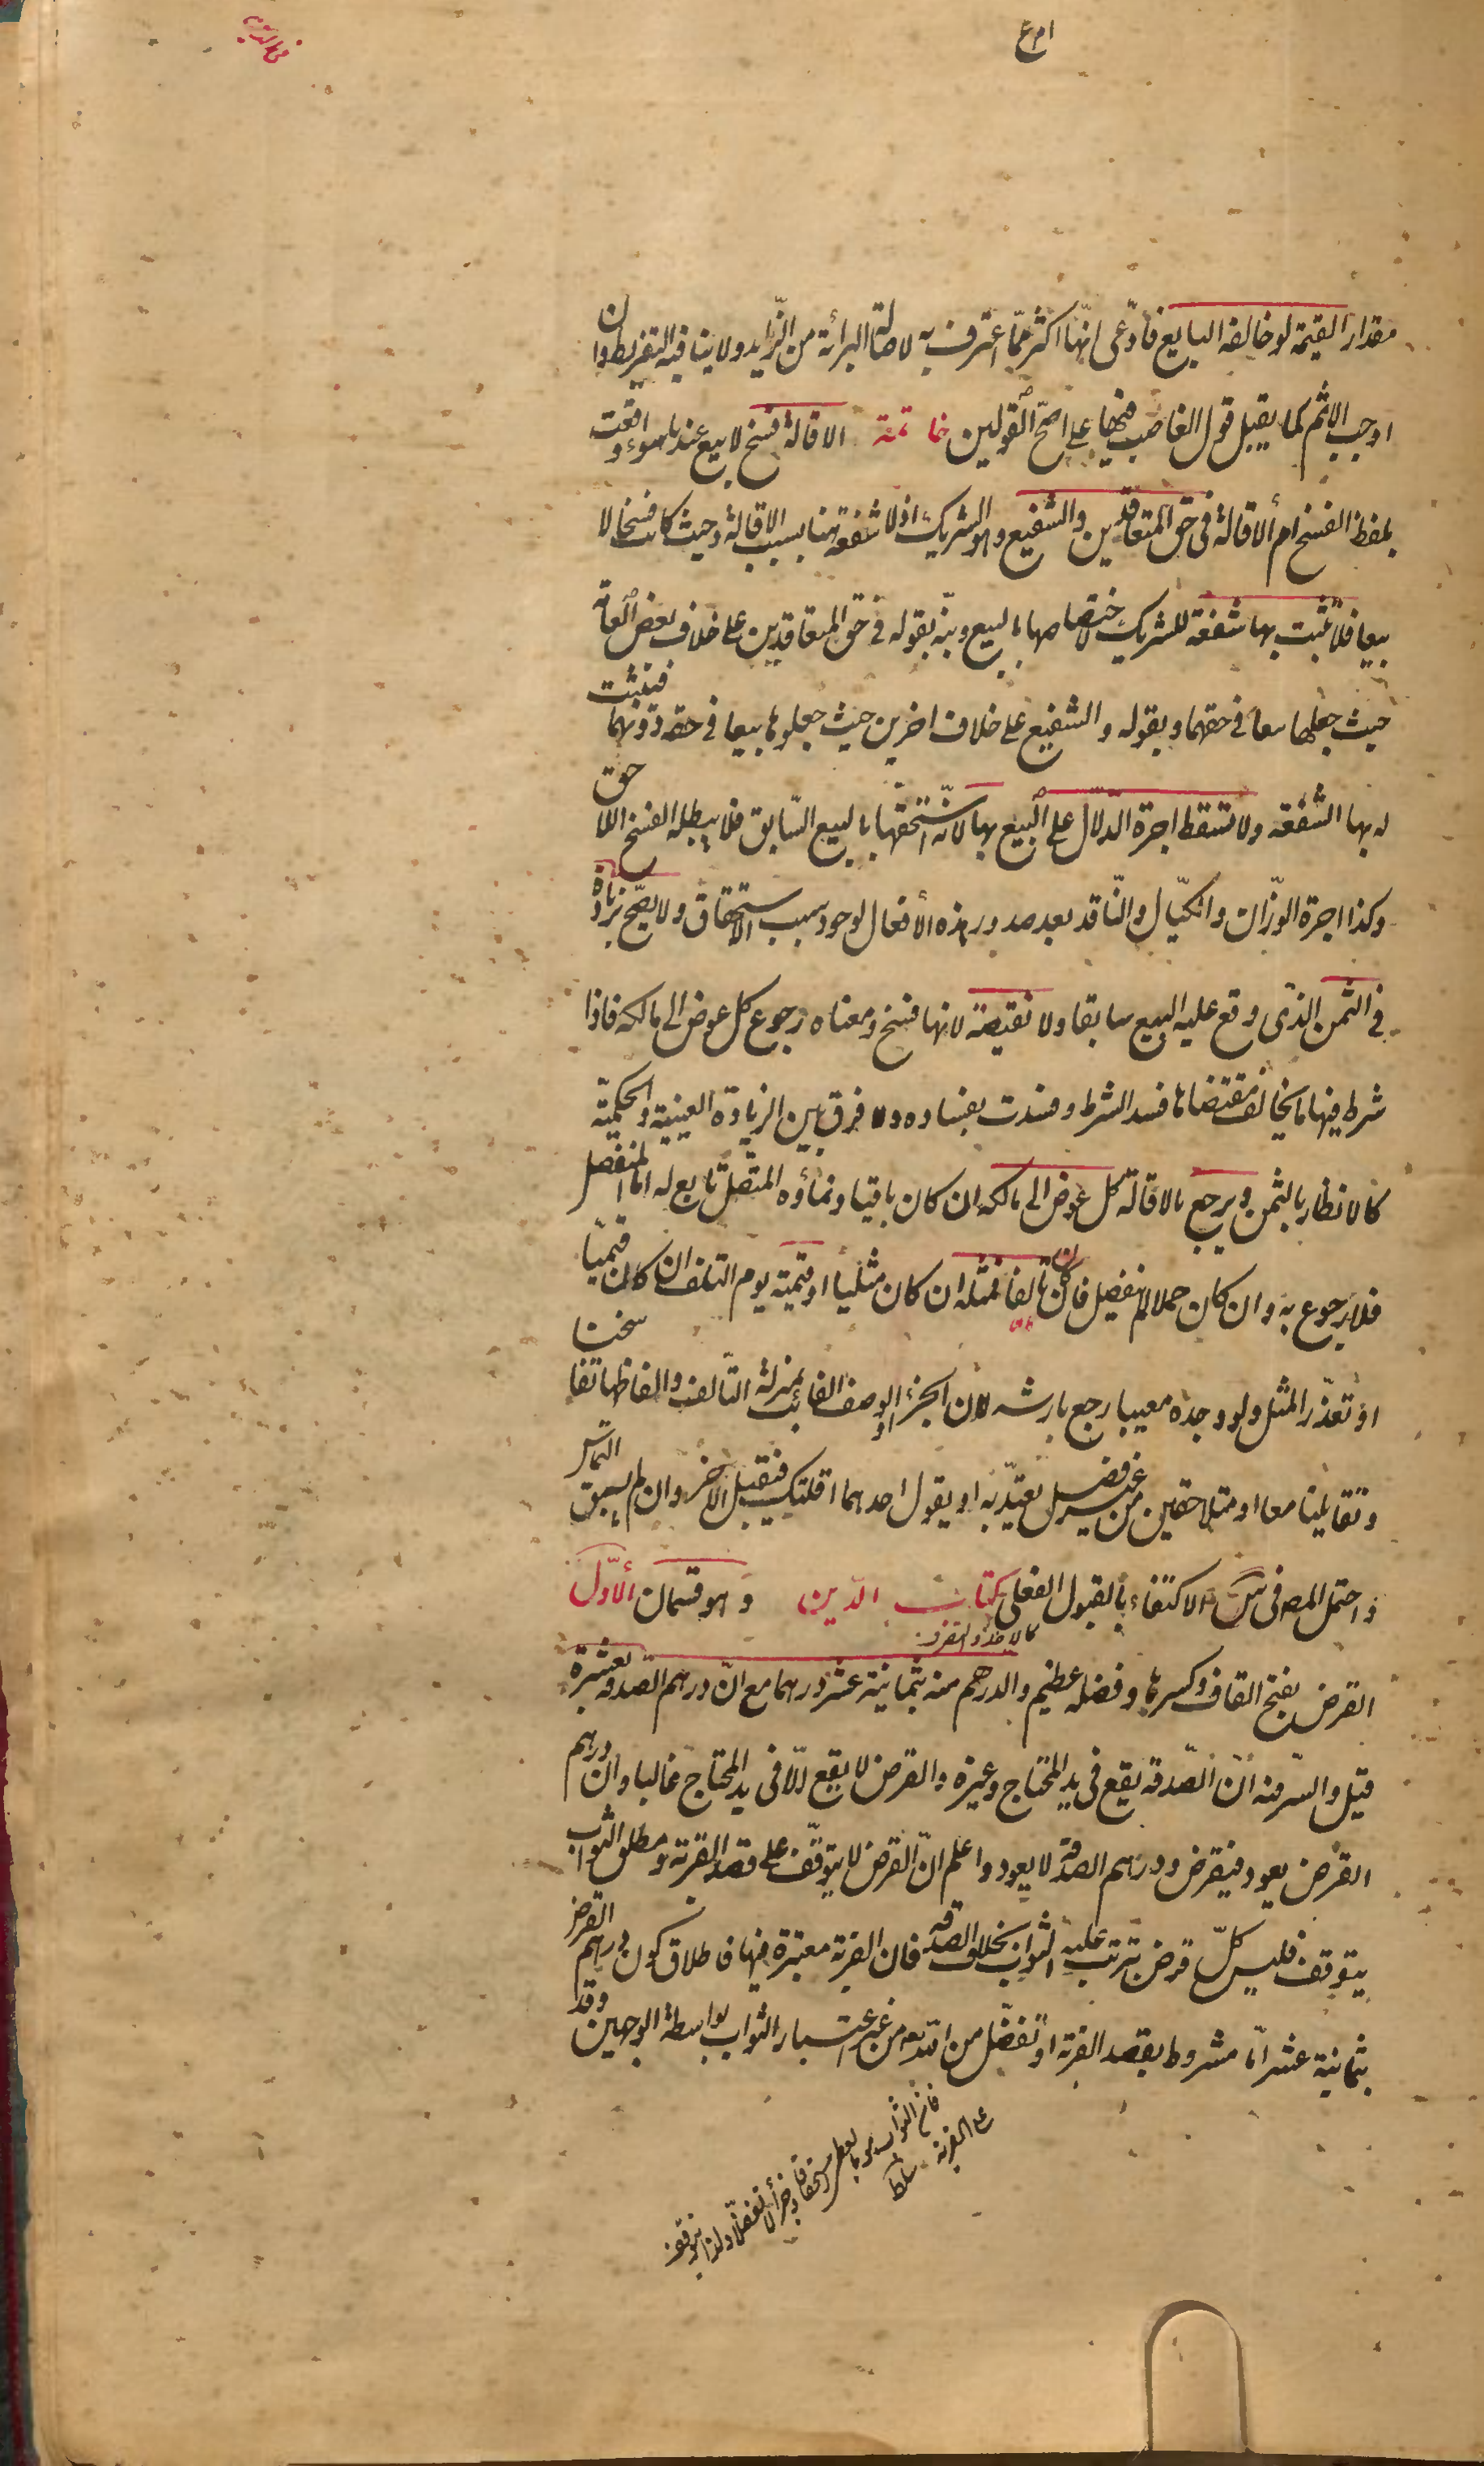 في الدين
مقدار القيمة لو خالفه البايع فادّعى انّها اكثر ممّا اعترف به لاصالة البرائة من الزّايد ولا ينافيه التفريط وان
اوجب الاثم كما يقبل قول الغاصب فيها على اصحّ القولين خاتمة الاقالة فسخ لا بيع عندنا سواء وقعت
بلفظ الفسخ ام ألاقالة في حق المتعاقدين والشفيع وهو الشريك اذ لا شفعة هنا بسبب الاقالة وحيث كانت فسخا لا
بيعا فلا تثبت بها شفعة للشريك لاختصاصها بالبيع ونبّه بقوله في حق المتعاقدين على خلاف بعض العامّة
حيث جعلها بيعا في حقهما وبقوله والشفيع على خلاف اخرين حيث جعلوها بيعا في حقه دونهما فيثبت
له بها الشفعة ولا تسقط اجرة الدّلّال على البيع بها لانّه استحقّها بالبيع السّابق فلا يبطله الفسخ اللاحق
وكذا اجرة الوزّان والكيّال والنّاقد بعد صدور هذه الأفعال لوجود سبب الاستحقاق ولا يصحّ بزيادة
في الثمن الذي وقع عليه البيع سابقا ولا نقيصة لانها فسخ ومعناه رجوع كل عوض الى مالكه فاذا
شرط فيها ما يخالف مقتضاها فسد الشرط وفسدت بفساده ولا فرق بين الزيادة العينية والحكميّة
كالانظار بالثمن ويرجع بالاقالة كل عوض الى مالكه ان كان باقيا ونمأوه المتّصل تابع له اما المنفصل
فلا رجوع به وان كان حملا لم ينفصل فان كان تالفا فمثله ان كان مثليا او قيمته يوم التلف ان كان قيميّا
او تعذّر المثل ولو وجده معيبا رجع بارشه لان الجزء او الوصف الفائت بمنزلة التّالف والفاظها تفاسخنا
وتقايلنا معا او متلاحقين من غير فصل يعتدّ به او يقول احدهما اقلتك فيقبل الاخر وان لم يسبق التماس
واحتمل المصر في س الاكتفاء بالقبول الفعلي كتاب الدّين وهو قسمان الأوّل
القرض بفتح القاف وكسرها وفضله عظيم والدرهم منه بثمانية عشر درهما مع انّ درهم الصّدقة بعشرة
قيل والسّر فيه ان الصّدقة يقع في يد المحتاج وغيره والقرض لا يقع الّا في يد المحتاج غالبا وان درهم
القرض يعود فيقرض ودرهم الصدقة لا يعود واعلم انّ القرض لا يتوقّف على قصد القربة ومطلق الثواب
يتوقف فليس كلّ قرض ترتب عليه الثواب بخلاف الصدقة فان القربة معتبرة فيها فاطلاق كون درهم القرض
بثمانية عشر امّا مشروط بقصد القربة او تفضّل من الله تعالى من غير اعتبار الثواب بواسطة الوجهين وقد